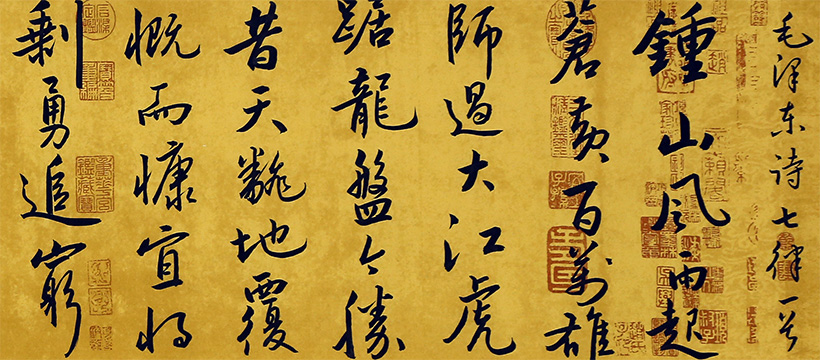 毛泽东诗七律一首
鍾山风雨起
蒼黄百萬雄
師過大江虎
踞龍盤今勝
昔天翻地覆
慨而慷宜将
剩勇追窮